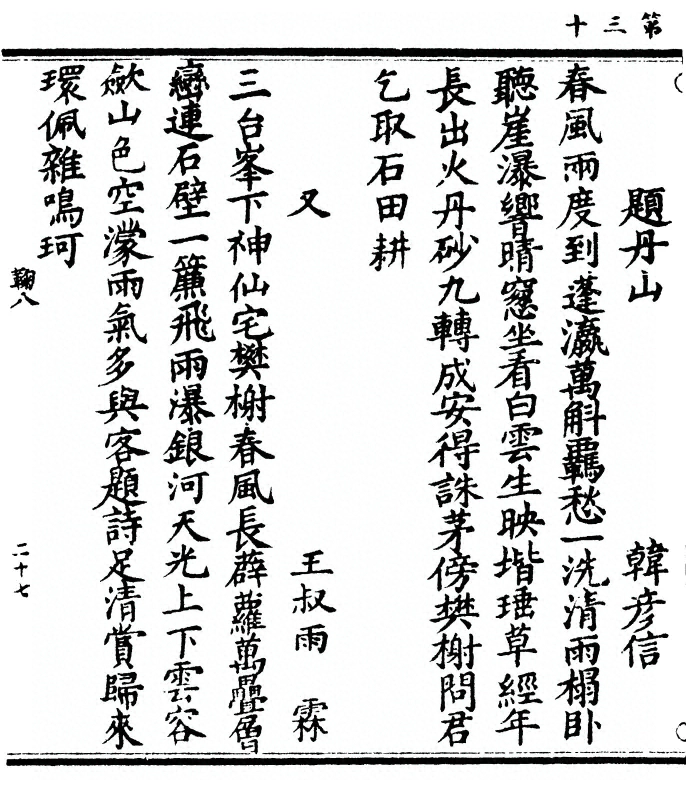 第三十
題丹山　韓彦信
春風兩度到蓬瀛萬斛羈愁一洗清雨榻卧
聽崖瀑響晴窻坐看白雲生映堦瑤草經年
長出火丹砂九轉成安得誅茅傍樊榭問君
乞取石田耕
又　王叔雨　霖
三台峯下神仙宅樊榭春風長薜蘿萬疊層
巒連石壁一簾飛雨瀑銀河天光上下雲容
斂山色空濛雨氣多與客題詩足清賞歸來
環佩雜鳴珂
鞠八
二十七